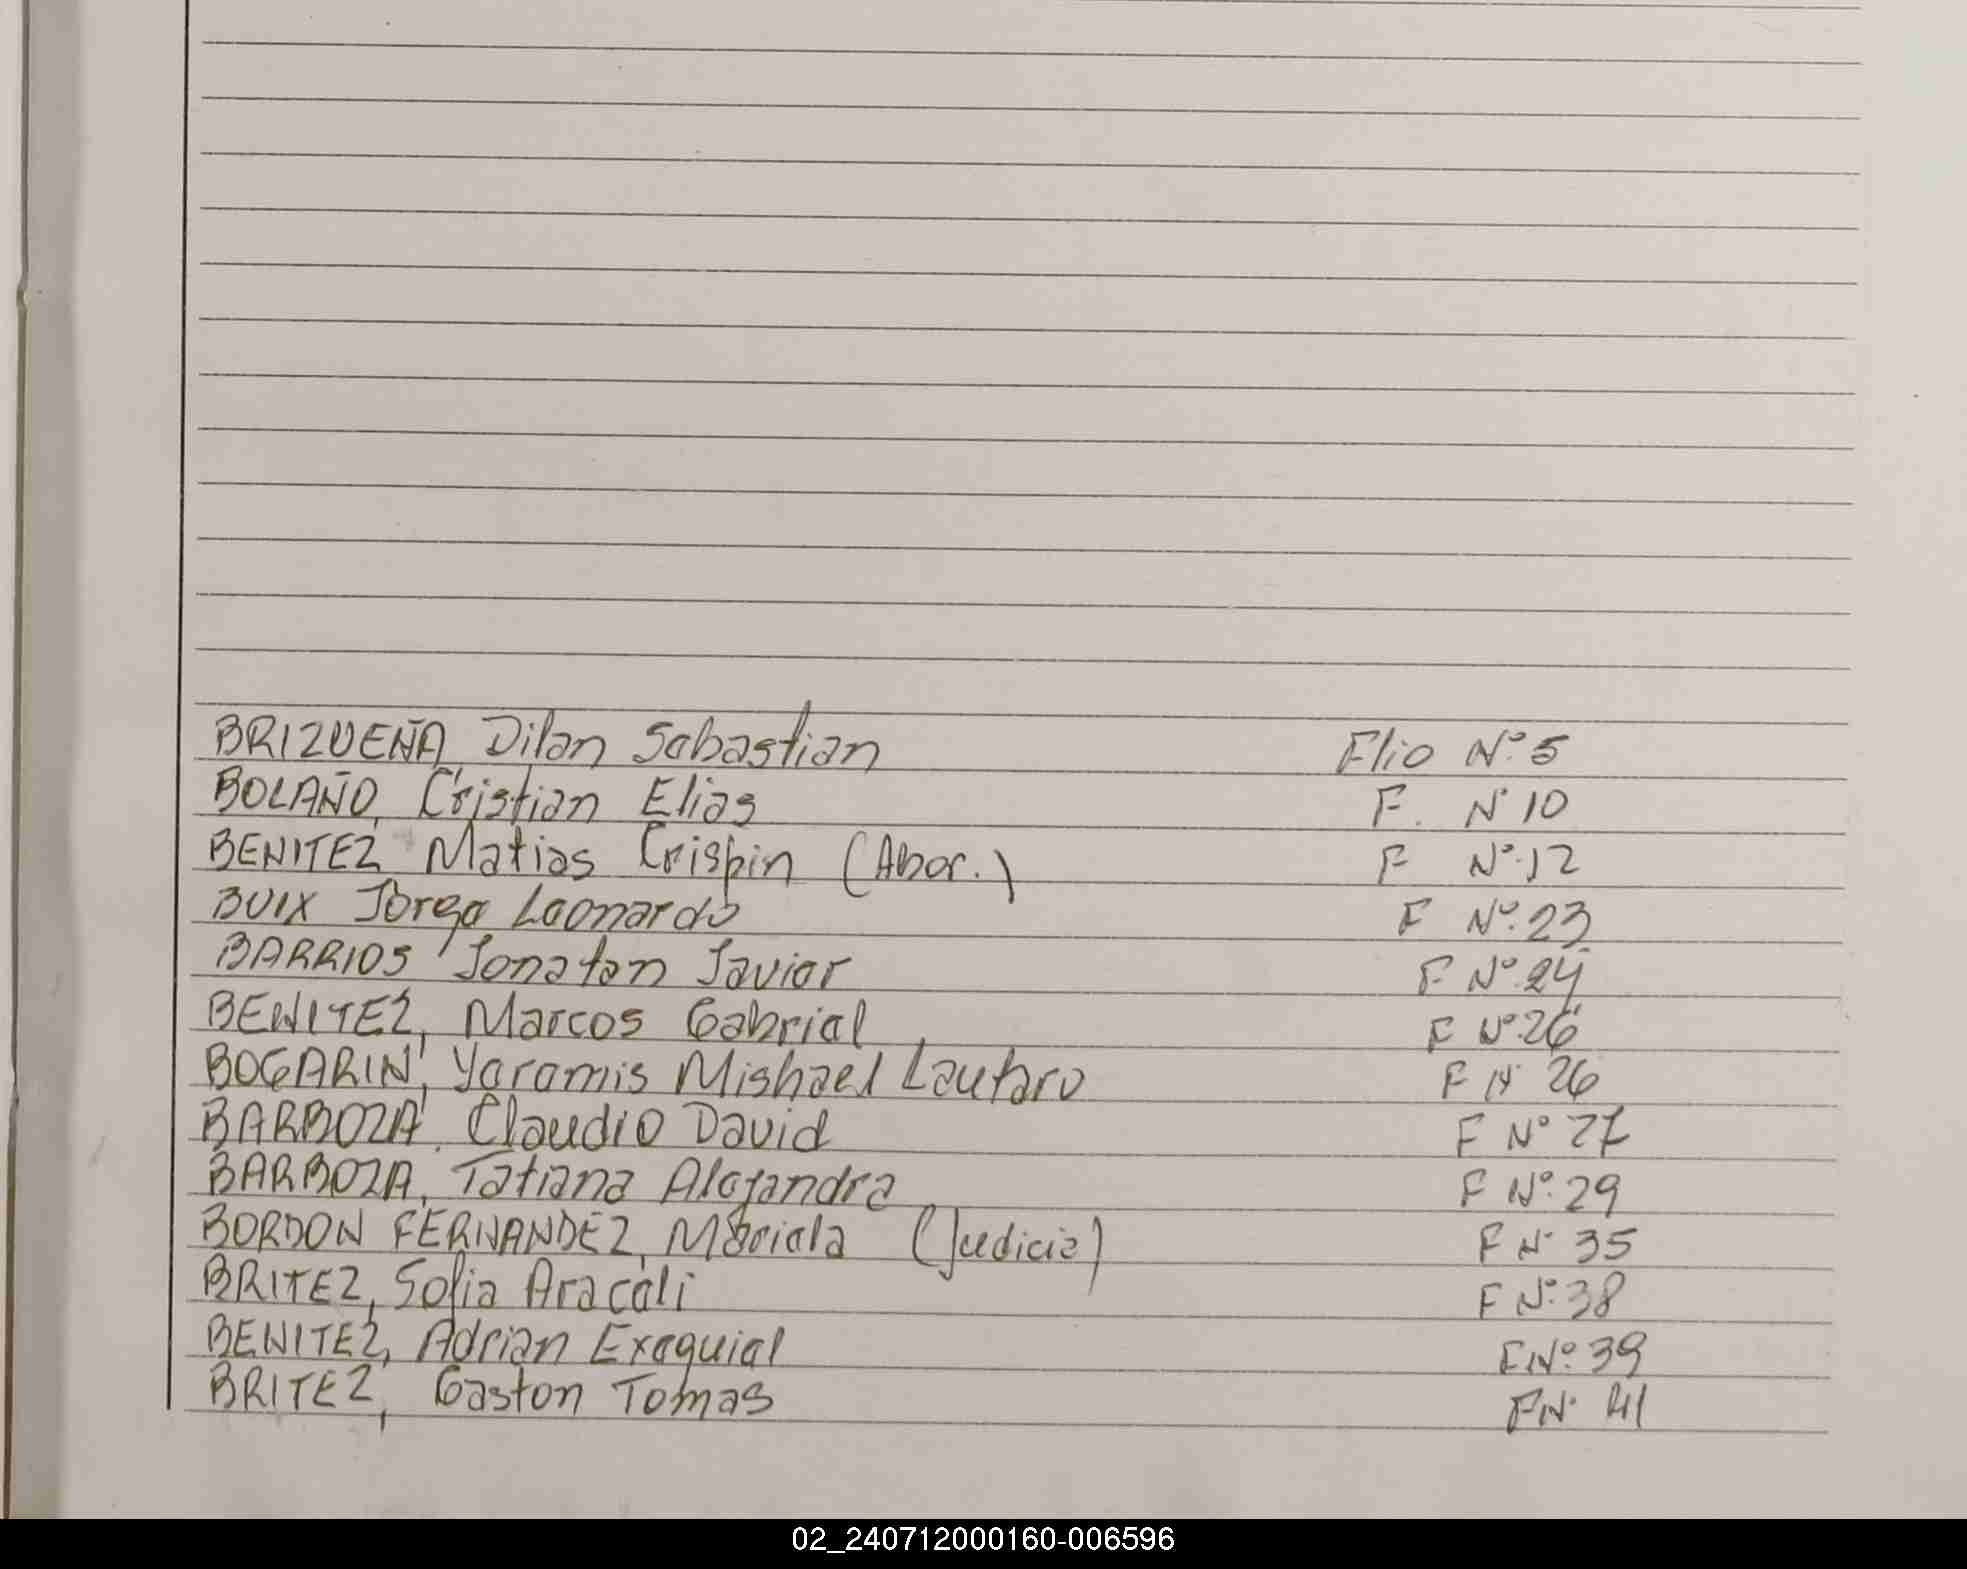 BRIZUEÑA, Dilan Sebastian Flio Nº 5
BOLAÑO, Cristian Elias F. Nº 10
BENITEZ Matias Crispin (Abor.) F Nº 12
BUIX Jorge Leonardo F Nº 23
BARRIOS Jonatan Javier F Nº 24
BENITEZ, Marcos Gabriel F Nº 26
BOGARIN, Yaramis Mishael Lautaro F Nº 26
BARBOZA, Claudio David F Nº 27
BARBOZA, Tatiana Alejandra F Nº 29
BORDON FERNANDEZ, Mariela (Judicia) F Nº 35
BRITEZ, Sofia Araceli F Nº 38
BENITEZ, Adrian Exequiel F Nº 39
BRITEZ, Gaston Tomas F Nº 41
02_240712000160-006596